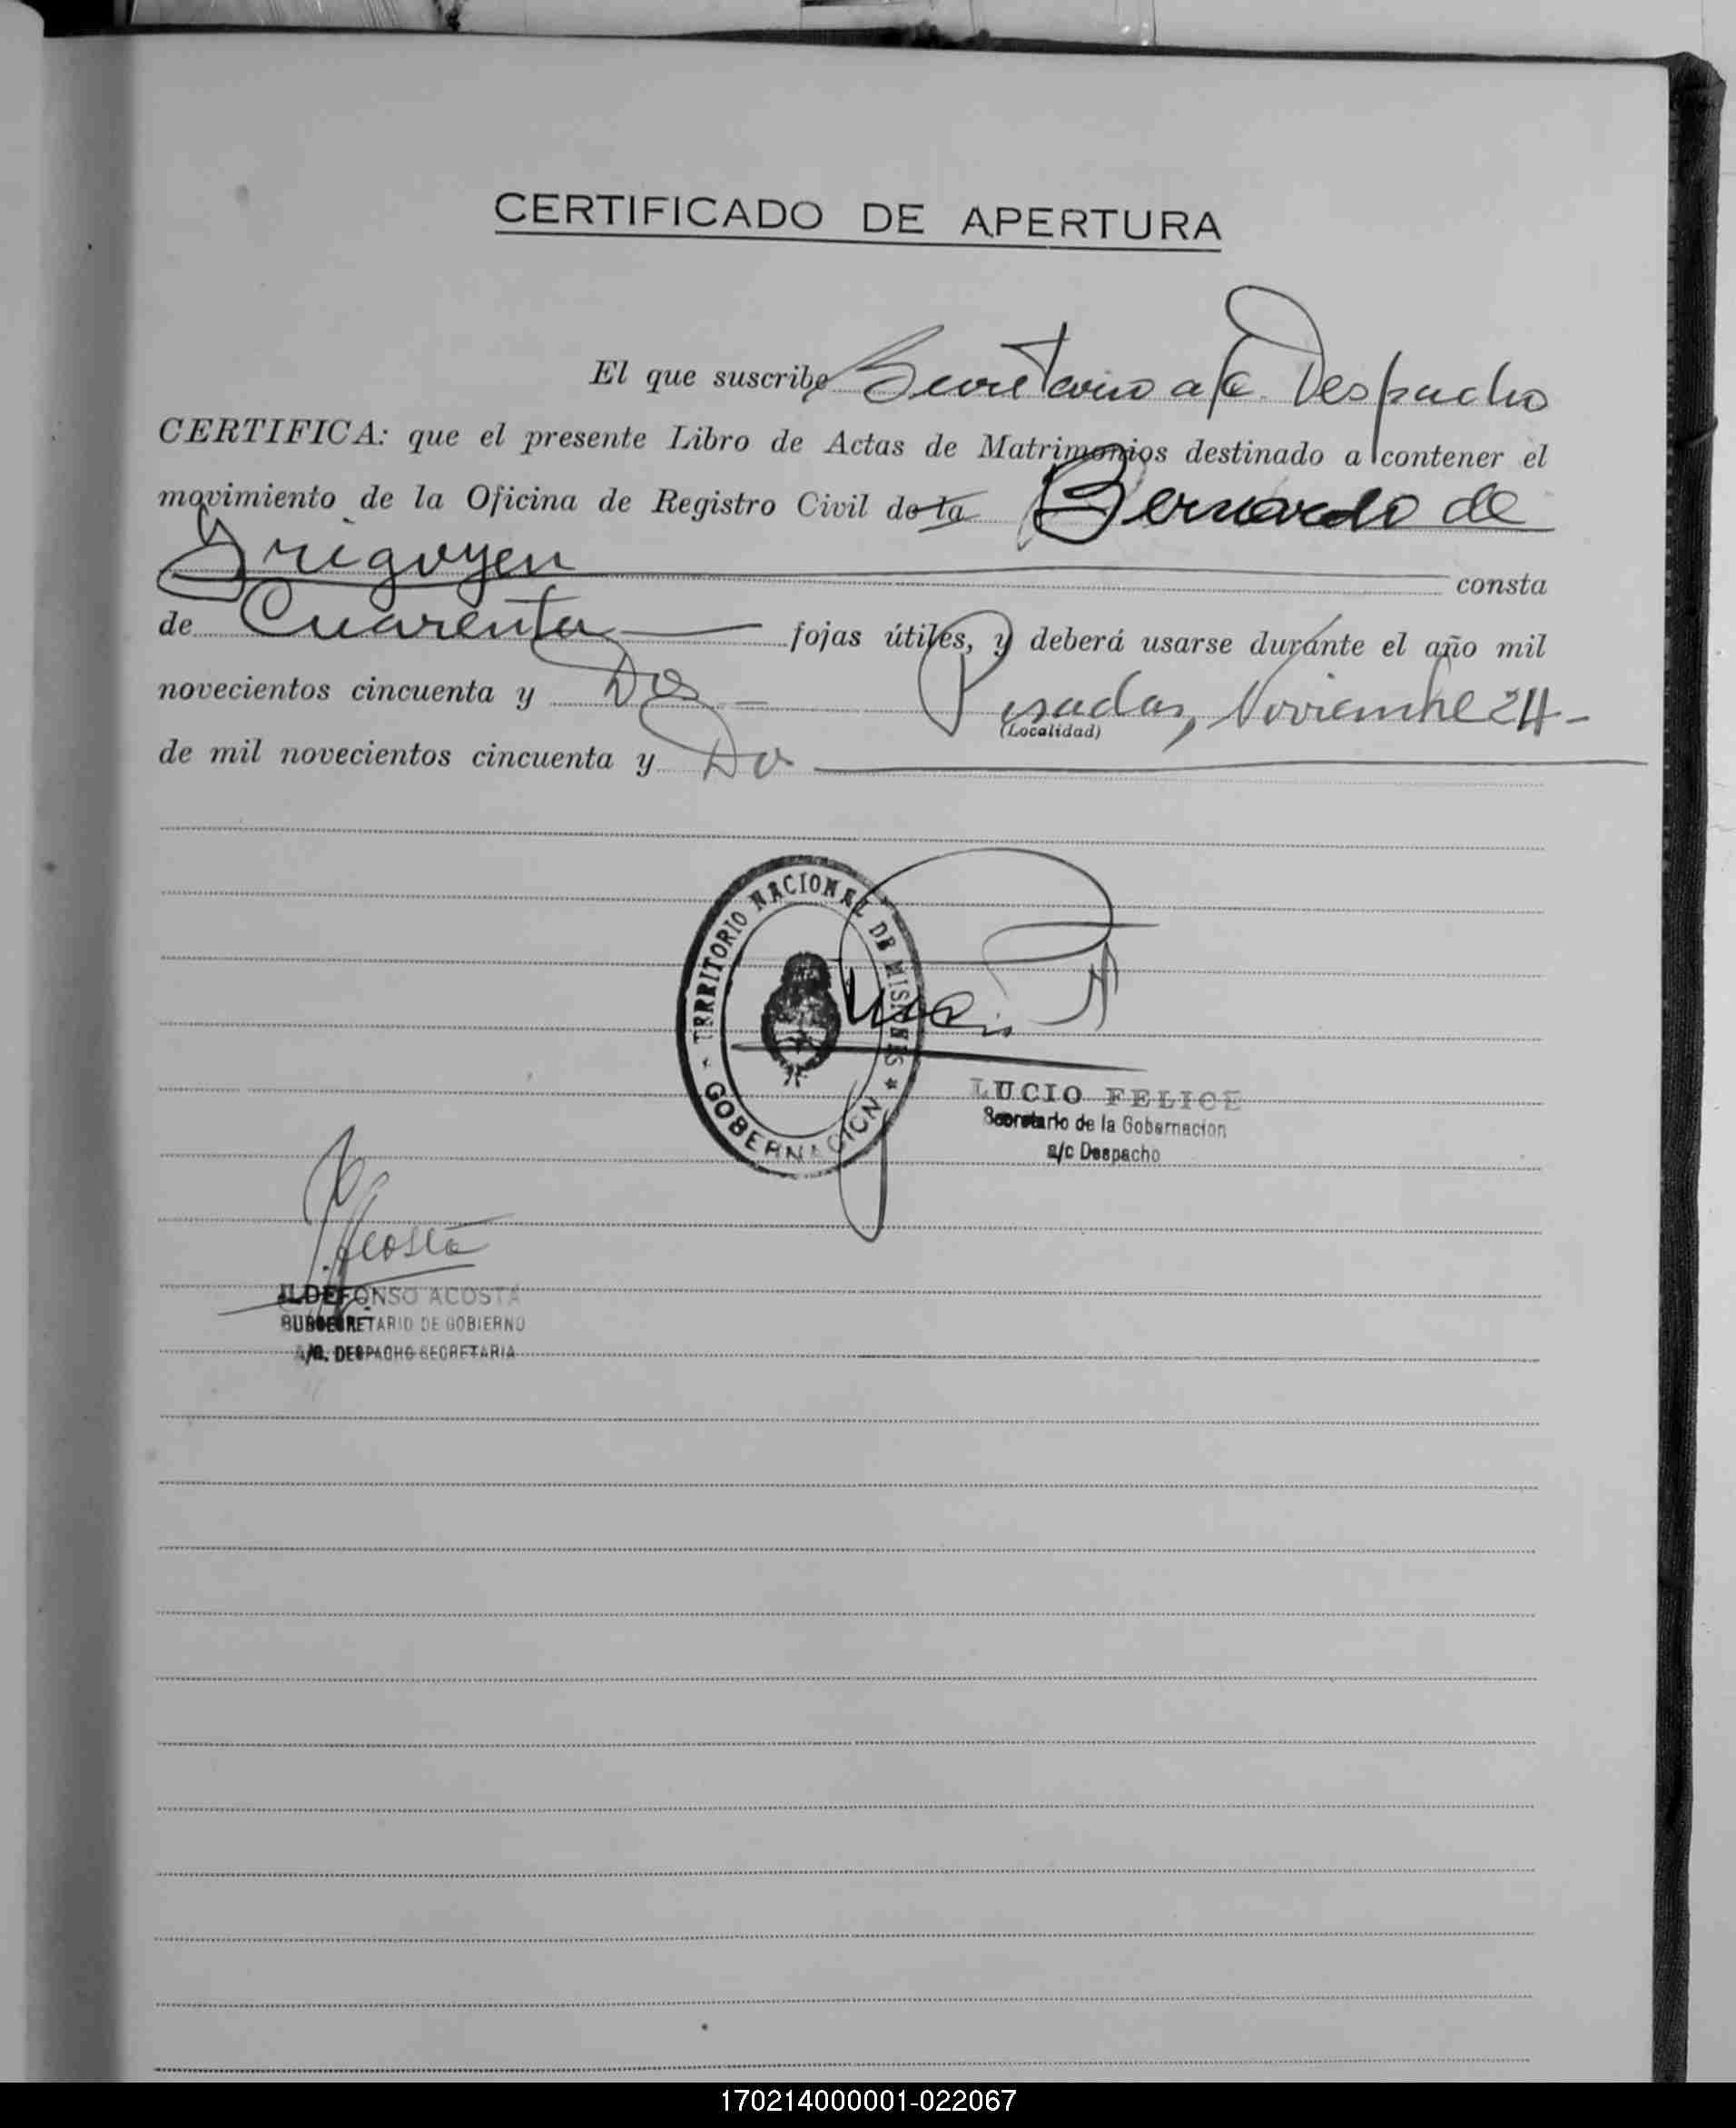 CERTIFICADO DE APERTURA
El que suscribe Secretario a/c. Despacho
CERTIFICA: que el presente Libro de Actas de Matrimonios destinado a contener el
movimiento de la Oficina de Registro Civil de la Bernardo de
Irigoyen consta
de Cuarenta fojas útiles, y deberá usarse durante el año mil
novecientos cincuenta y Dos Posadas, Noviembre 24
(Localidad)
de mil novecientos cincuenta y Dos
TERRITORIO NACIONAL DE MISIONES
* GOBERNACION *
LUCIO FELICE
Secretario de la Gobernacion
a/c Despacho
Acosta
ILDEFONSO ACOSTA
SUBSECRETARIO DE GOBIERNO
A/C. DESPACHO SECRETARIA
170214000001-022067